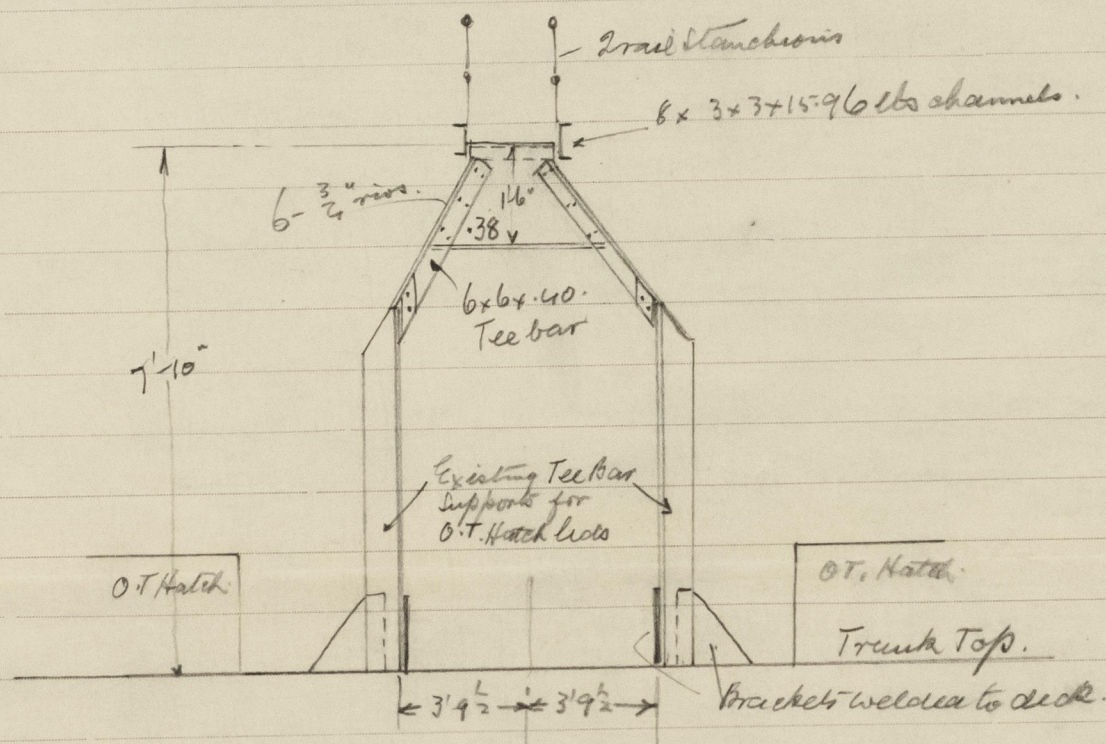 2 rail Stanchions
8 x 3 x 3 x 15.96 lbs channels.
6 - 3/4" rivs.
1'6"
38
6 x 6 x .40.
Tee bar
7'-10"
Existing Tee Bar
Supports for
O.T. Hatch lids
O.T Hatch
O.T. Hatch.
Trunk Top.
3' 9 1/2 3' 9 1/2
Brackets welded to deck.